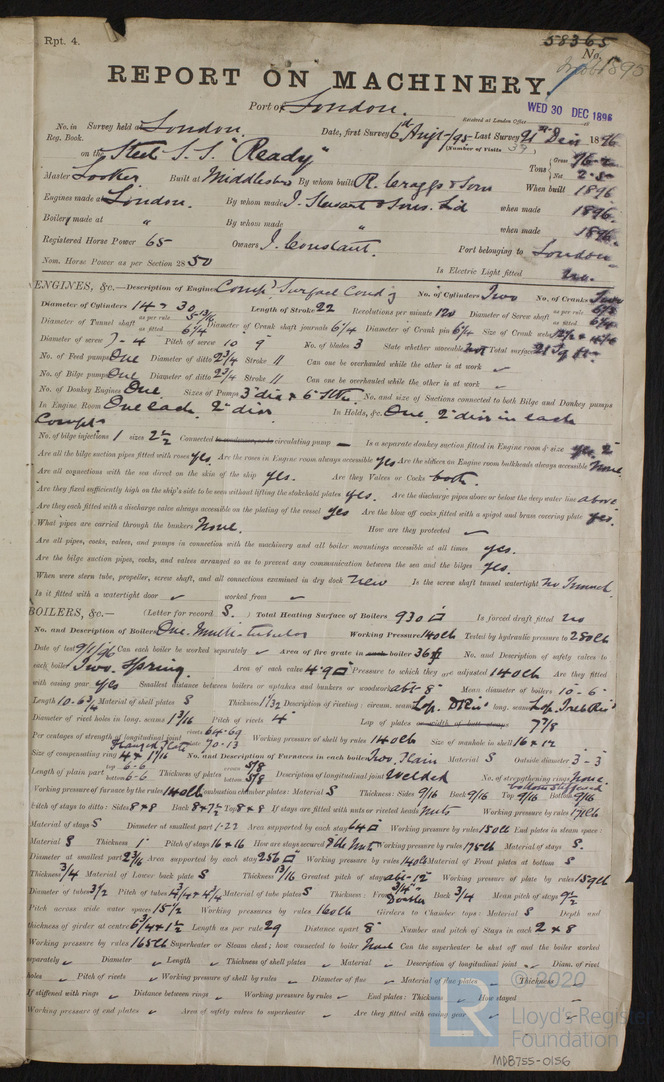 Rpt. 4.
58365
No.
REPORT ON MACHINERY.
Port of London.
Received at London Office WED 30 DEC 1896
No. in Survey held at London. Date, first Survey 6th Augt/95 Last Survey 21st Decr 1896
Reg. Book. (Number of Visits 39)
on the Steel S.S. "Ready" Tons Gross Net
Master Looker Built at Middlesbro By whom built R. Craggs & Sons When built 1896
Engines made at London. By whom made J. Stewart & Sons. Ld when made 1896.
Boilery made at " By whom made " when made 1896.
Registered Horse Power 65 Owners J. Constant. Port belonging to London
Nom. Horse Power as per Section 28 50 Is Electric Light fitted no.
ENGINES, &c.—Description of Engines Compd. Surface Condg No. of Cylinders Two No. of Cranks Two
Diameter of Cylinders 14 & 30 Length of Stroke 22 Revolutions per minute 120 Diameter of Screw shaft as per rule as fitted 6 1/4
Diameter of Tunnel shaft as per rule 5-13/16 as fitted 6 1/4 Diameter of Crank shaft journals 6 1/4 Diameter of Crank pin 6 1/4 Size of Crank webs
Diameter of screw 7-4 Pitch of screw 10 9 No. of blades 3 State whether moveable not Total surface 21 sq ft.
No. of Feed pumps One Diameter of ditto 2 3/4 Stroke 11 Can one be overhauled while the other is at work ✓
No. of Bilge pumps One Diameter of ditto 2 3/4 Stroke 11 Can one be overhauled while the other is at work ✓
No. of Donkey Engines One Sizes of Pumps 3" dia & 6" Stke No. and size of Suctions connected to both Bilge and Donkey pumps
In Engine Room One each 2" diar In Holds, &c. One 2" diar in each
Compt
No. of bilge injections 1 sizes 2 1/2 Connected to condenser, or to circulating pump — Is a separate donkey suction fitted in Engine room & size yes 2"
Are all the bilge suction pipes fitted with roses yes. Are the roses in Engine room always accessible yes Are the sluices on Engine room bulkheads always accessible None
Are all connections with the sea direct on the skin of the ship yes. Are they Valves or Cocks both.
Are they fixed sufficiently high on the ship's side to be seen without lifting the stokehold plates yes. Are the discharge pipes above or below the deep water line above
Are they each fitted with a discharge valve always accessible on the plating of the vessel yes Are the blow off cocks fitted with a spigot and brass covering plate yes.
What pipes are carried through the bunkers None. How are they protected ✓
Are all pipes, cocks, valves, and pumps in connection with the machinery and all boiler mountings accessible at all times yes.
Are the bilge suction pipes, cocks, and valves arranged so as to prevent any communication between the sea and the bilges yes.
When were stern tube, propeller, screw shaft, and all connections examined in dry dock new Is the screw shaft tunnel watertight no Tunnel.
Is it fitted with a watertight door ✓ worked from ✓
BOILERS, &c.— (Letter for record S.) Total Heating Surface of Boilers 930 □ Is forced draft fitted no
No. and Description of Boilers One. Multi-tubular Working Pressure 140 lb Tested by hydraulic pressure to 280 lb
Date of test 9/1/96 Can each boiler be worked separately ✓ Area of fire grate in each boiler 36 ft No. and Description of safety valves to
each boiler Two. Spring. Area of each valve 4.9 □" Pressure to which they are adjusted 140 lb Are they fitted
with easing gear yes Smallest distance between boilers or uptakes and bunkers or woodwork abt-8" Mean diameter of boilers 10-6
Length 10-6 3/4 Material of shell plates S Thickness 1 1/32 Description of riveting: circum. seams Lap. D Riv long. seams Lap. Treb Riv
Diameter of rivet holes in long. seams 1 3/16 Pitch of rivets 4" Lap of plates or width of butt straps 7 7/8
Per centages of strength of longitudinal joint rivets 64-69 plate 70-13 Working pressure of shell by rules 140 lb Size of manhole in shell 16 x 12
Size of compensating ring Flanged Plate No. and Description of Furnaces in each boiler Two, Plain Material S Outside diameter 3-3
Length of plain part top 6-6 bottom 6-6 Thickness of plates crown 5/8 bottom 5/8 Description of longitudinal joint Welded No. of strengthening rings None bottom stiffened
Working pressure of furnace by the rules 140 lb Combustion chamber plates: Material S Thickness: Sides 9/16 Back 9/16 Top 9/16 Bottom 9/16
Pitch of stays to ditto: Sides 8 x 8 Back 8 x 7 1/2 Top 8 x 8 If stays are fitted with nuts or riveted heads Nuts Working pressure by rules 171 lb
Material of stays S Diameter at smallest part 1-22 Area supported by each stay 64 □ Working pressure by rules 150 lb End plates in steam space:
Material S Thickness 1 Pitch of stays 16 x 16 How are stays secured Dble Nuts Working pressure by rules 175 lb Material of stays S.
Diameter at smallest part 2 3/16 Area supported by each stay 256 □ Working pressure by rules 140 lb Material of Front plates at bottom S
Thickness 3/4 Material of Lower back plate S Thickness 13/16 Greatest pitch of stays abt-12" Working pressure of plate by rules 159 lb
Diameter of tubes 3 1/2 Pitch of tubes 4 3/4 x 4 3/4 Material of tube plates S Thickness: Front 3/4" Doubler Back 3/4 Mean pitch of stays 9 1/2
Pitch across wide water spaces 15 1/2 Working pressures by rules 160 lb Girders to Chamber tops: Material S Depth and
thickness of girder at centre 6 3/4 x 1 1/2 Length as per rule 29 Distance apart 8" Number and pitch of Stays in each 2 x 8
Working pressure by rules 165 lb Superheater or Steam chest; how connected to boiler None Can the superheater be shut off and the boiler worked
separately ✓ Diameter ✓ Length ✓ Thickness of shell plates ✓ Material ✓ Description of longitudinal joint ✓ Diam. of rivet
holes ✓ Pitch of rivets ✓ Working pressure of shell by rules ✓ Diameter of flue ✓ Material of flue plates ✓ Thickness ✓
If stiffened with rings ✓ Distance between rings ✓ Working pressure by rules ✓ End plates: Thickness ✓ How stayed ✓
Working pressure of end plates ✓ Area of safety valves to superheater ✓ Are they fitted with easing gear ✓
LR © 2020
Lloyd's Register
Foundation
MDB755-0156